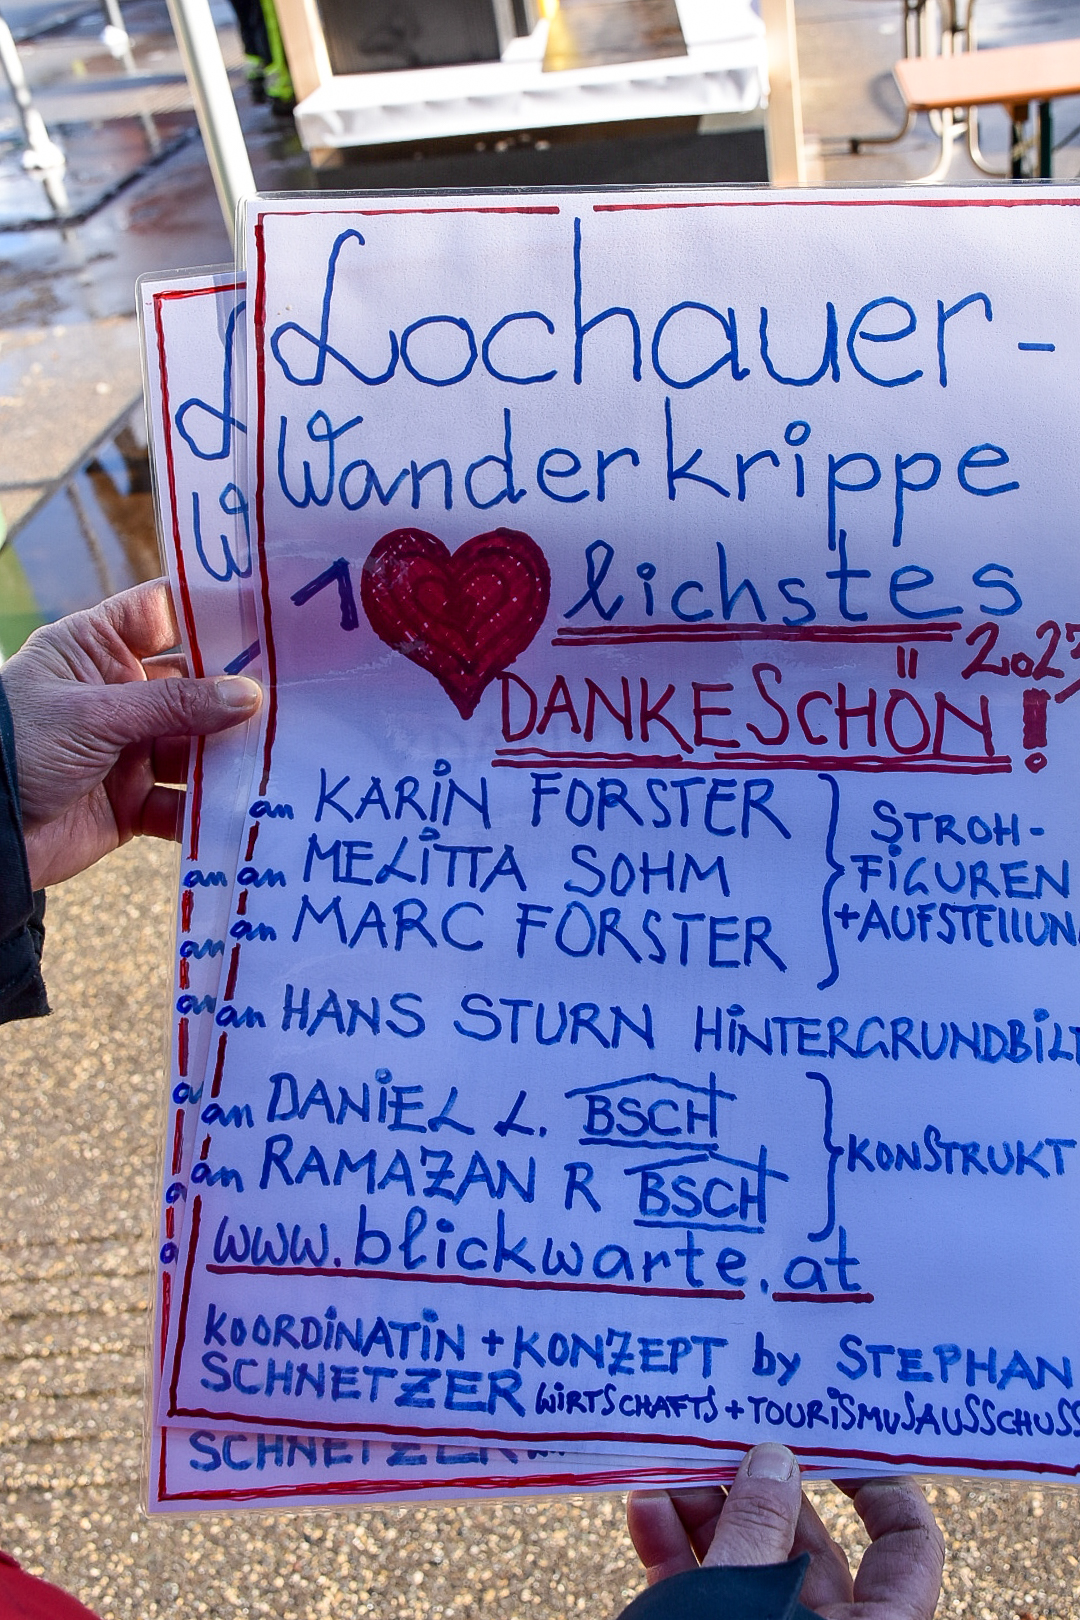 Lochauer-
Wanderkrippe
1 lichstes
DANKESCHÖN! 2023
an KARIN FORSTER
an MELITTA SOHM
an MARC FORSTER
STROH-
FIGUREN
+AUFSTELLUN
an HANS STURN HINTERGRUNDBIL
an DANIEL L. BSCH
an RAMAZAN R BSCH
KONSTRUKT
www.blickwarte.at
KOORDINATIN + KONZEPT by STEPHAN
SCHNETZER WIRTSCHAFTS + TOURISMUSAUSSCHUSS
L
W
an
an
an
SCHNETZER